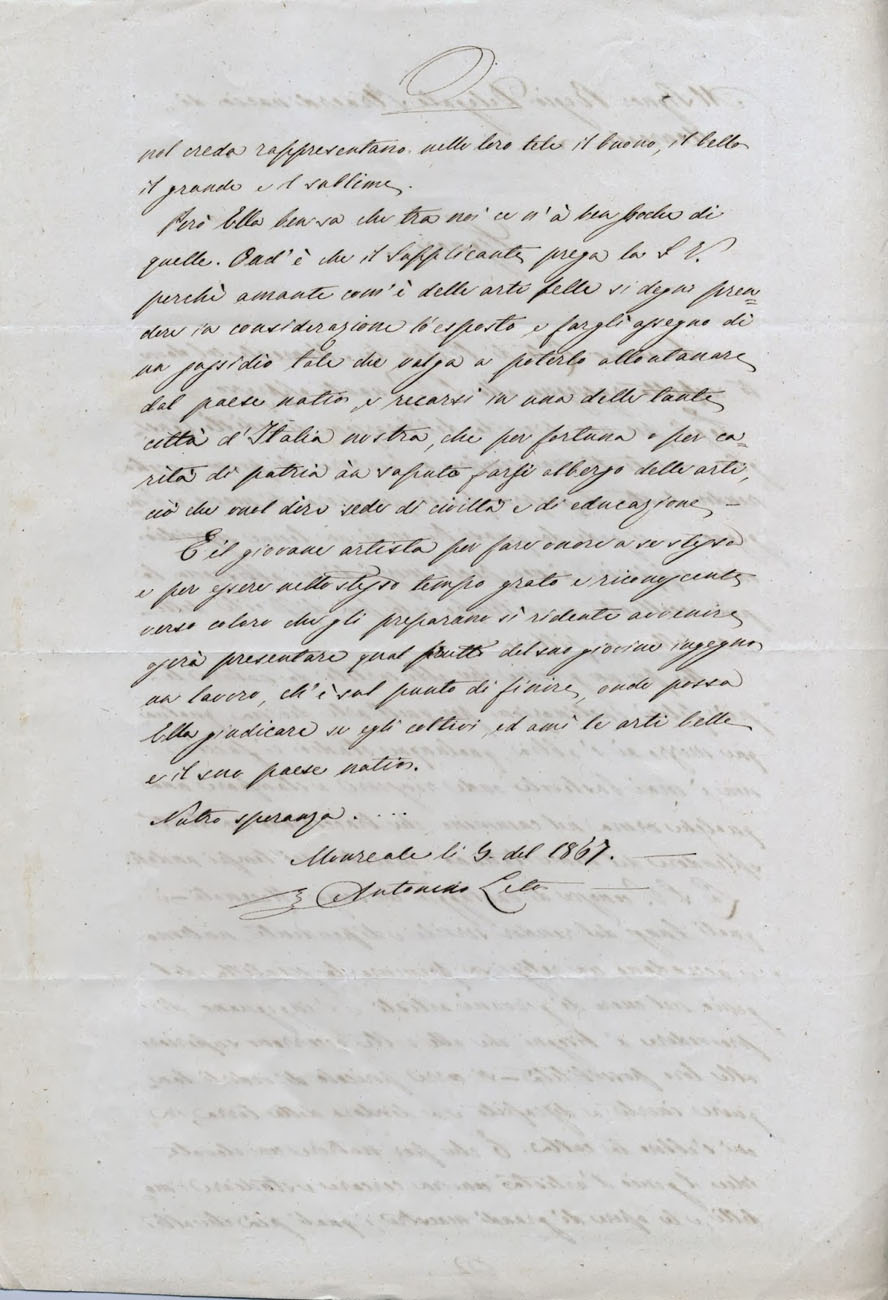 nol creda rappresentano nelle loro tele il buono, il bello
il grande e 'l sublime.
Però Ella ben sa che tra noi ce n'à ben poche di
quelle. Ond'è che il Supplicante prega la S. V.
perchè amante com'è delle arti belle si degni pren=
dere in considerazione l'esposto, e fargli assegno di
un sussidio tale che valga a poterlo allontanare
dal paese natio, e recarsi in una delle tante
città d'Italia nostra, che per fortuna o per ca=
rità di patria àn saputo farsi albergo delle arti,
ciò che vuol dire sede di civiltà e di educazione –
E il giovane artista per fare onore a se stesso
e per essere nello stesso tempo grato e riconoscente
verso coloro che gli preparano sì ridente avvenire
oserà presentare qual frutto del suo giovine ingegno
un lavoro, ch'è sul punto di finire, onde possa
Ella giudicare se egli coltivi, ed ami le arti belle
e il suo paese natio.
Nutro speranza. . . .
Monreale li 5. del 1867. —
Antonino Leto